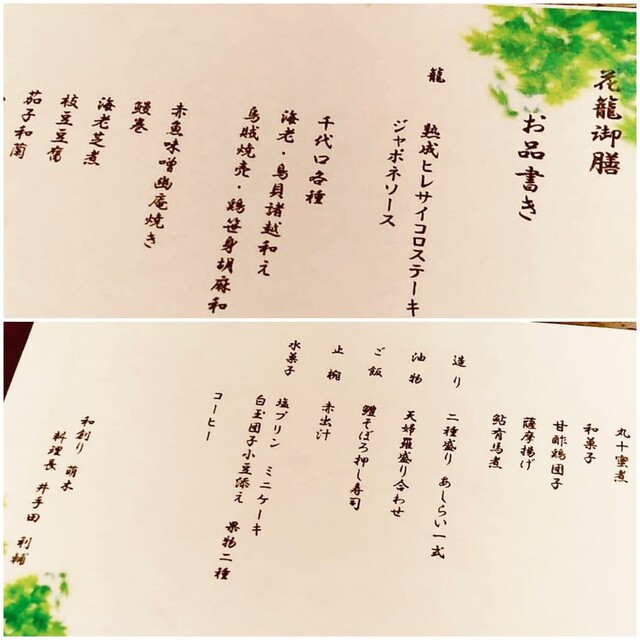 花龍御膳
お品書き
龍 熟成ヒレサイコロステーキ
ジャポネソース
千代口各種
海老・鳥貝諸越和え
烏賊焼売・鶏笹身胡麻和
赤魚味噌幽庵焼き
鰻巻
海老芝煮
枝豆豆腐
茄子和蘭
丸十蜜煮
和菓子
甘酢鶏団子
薩摩揚げ
鮎有馬煮
造り 二種盛り あしらい一式
油物 天婦羅盛り合わせ
ご飯 鱧そぼろ押し寿司
止椀 赤出汁
水菓子 塩プリン ミニケーキ
白玉団子小豆添え 果物二種
コーヒー
和創り 萌木
料理長 井手田 利輔